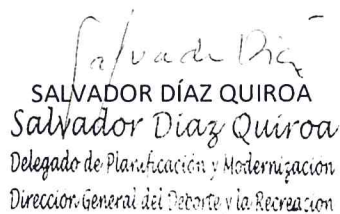 Salvador Díaz
SALVADOR DÍAZ QUIROA
Salvador Diaz Quiroa
Delegado de Planificación y Modernización
Dirección General del Deporte y la Recreación